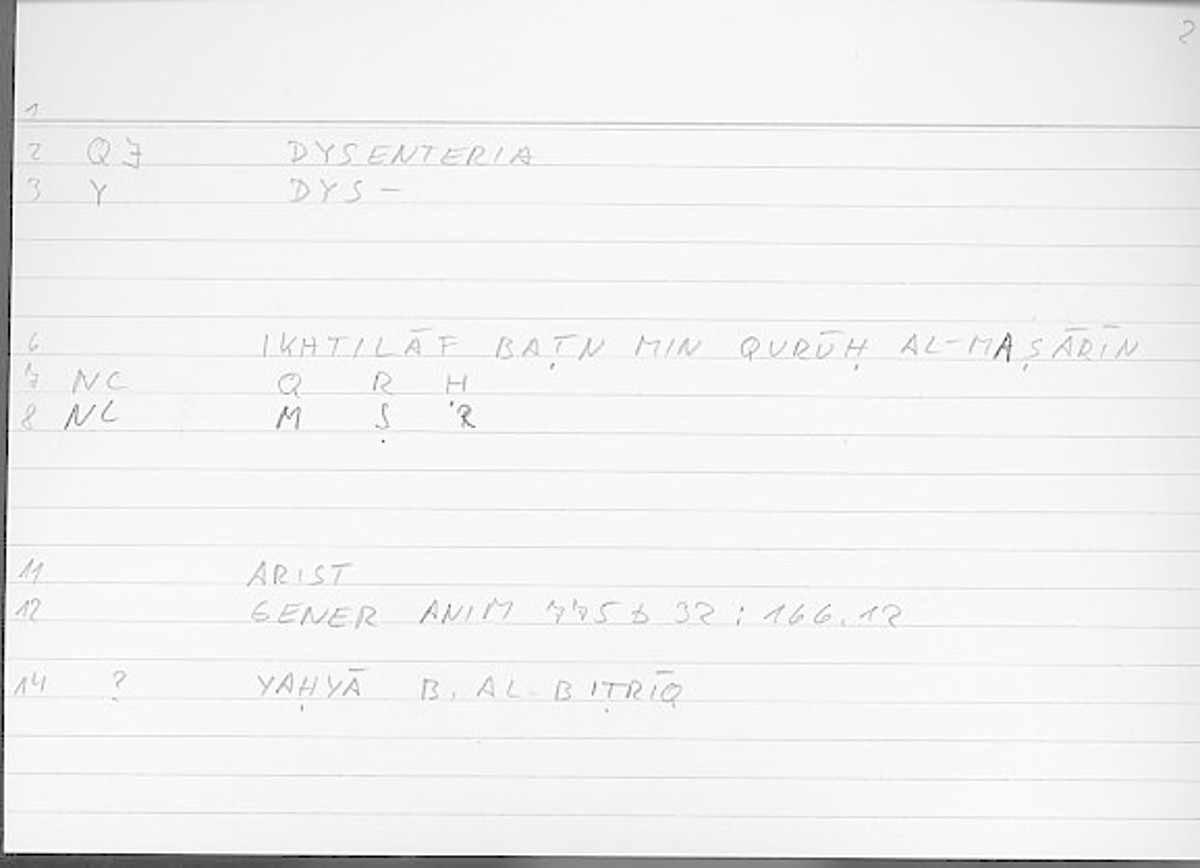 2
1
2 QJ DYSENTERIA
3 Y DYS-
6 IKHTILĀF BAṬN MIN QURŪḤ AL-MAṢĀRĪN
7 NC Q R H
8 NC M Ṣ R
11 ARIST
12 GENER ANIM 775 b 32 : 166.12
14 ? YAḤYĀ B. AL-BIṬRĪQ